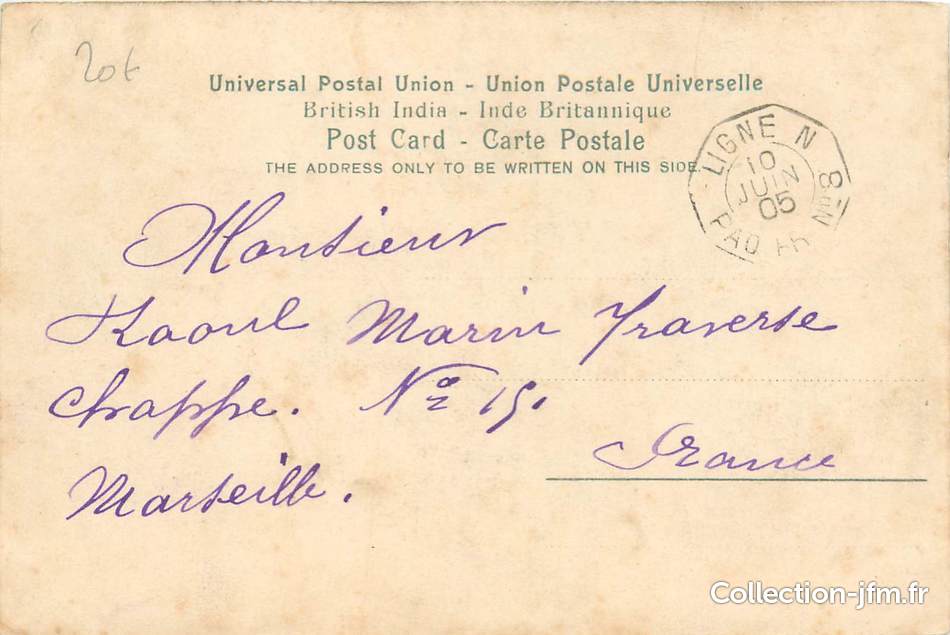 20f
Universal Postal Union - Union Postale Universelle
British India - Inde Britannique
Post Card - Carte Postale
THE ADDRESS ONLY TO BE WRITTEN ON THIS SIDE.
LIGNE N
PAQ FR Nº 8
10
JUIN
05
Monsieur
Raoul Marin Traverse
Chappe. Nº 15.
Marseille.
France
Collection-jfm.fr